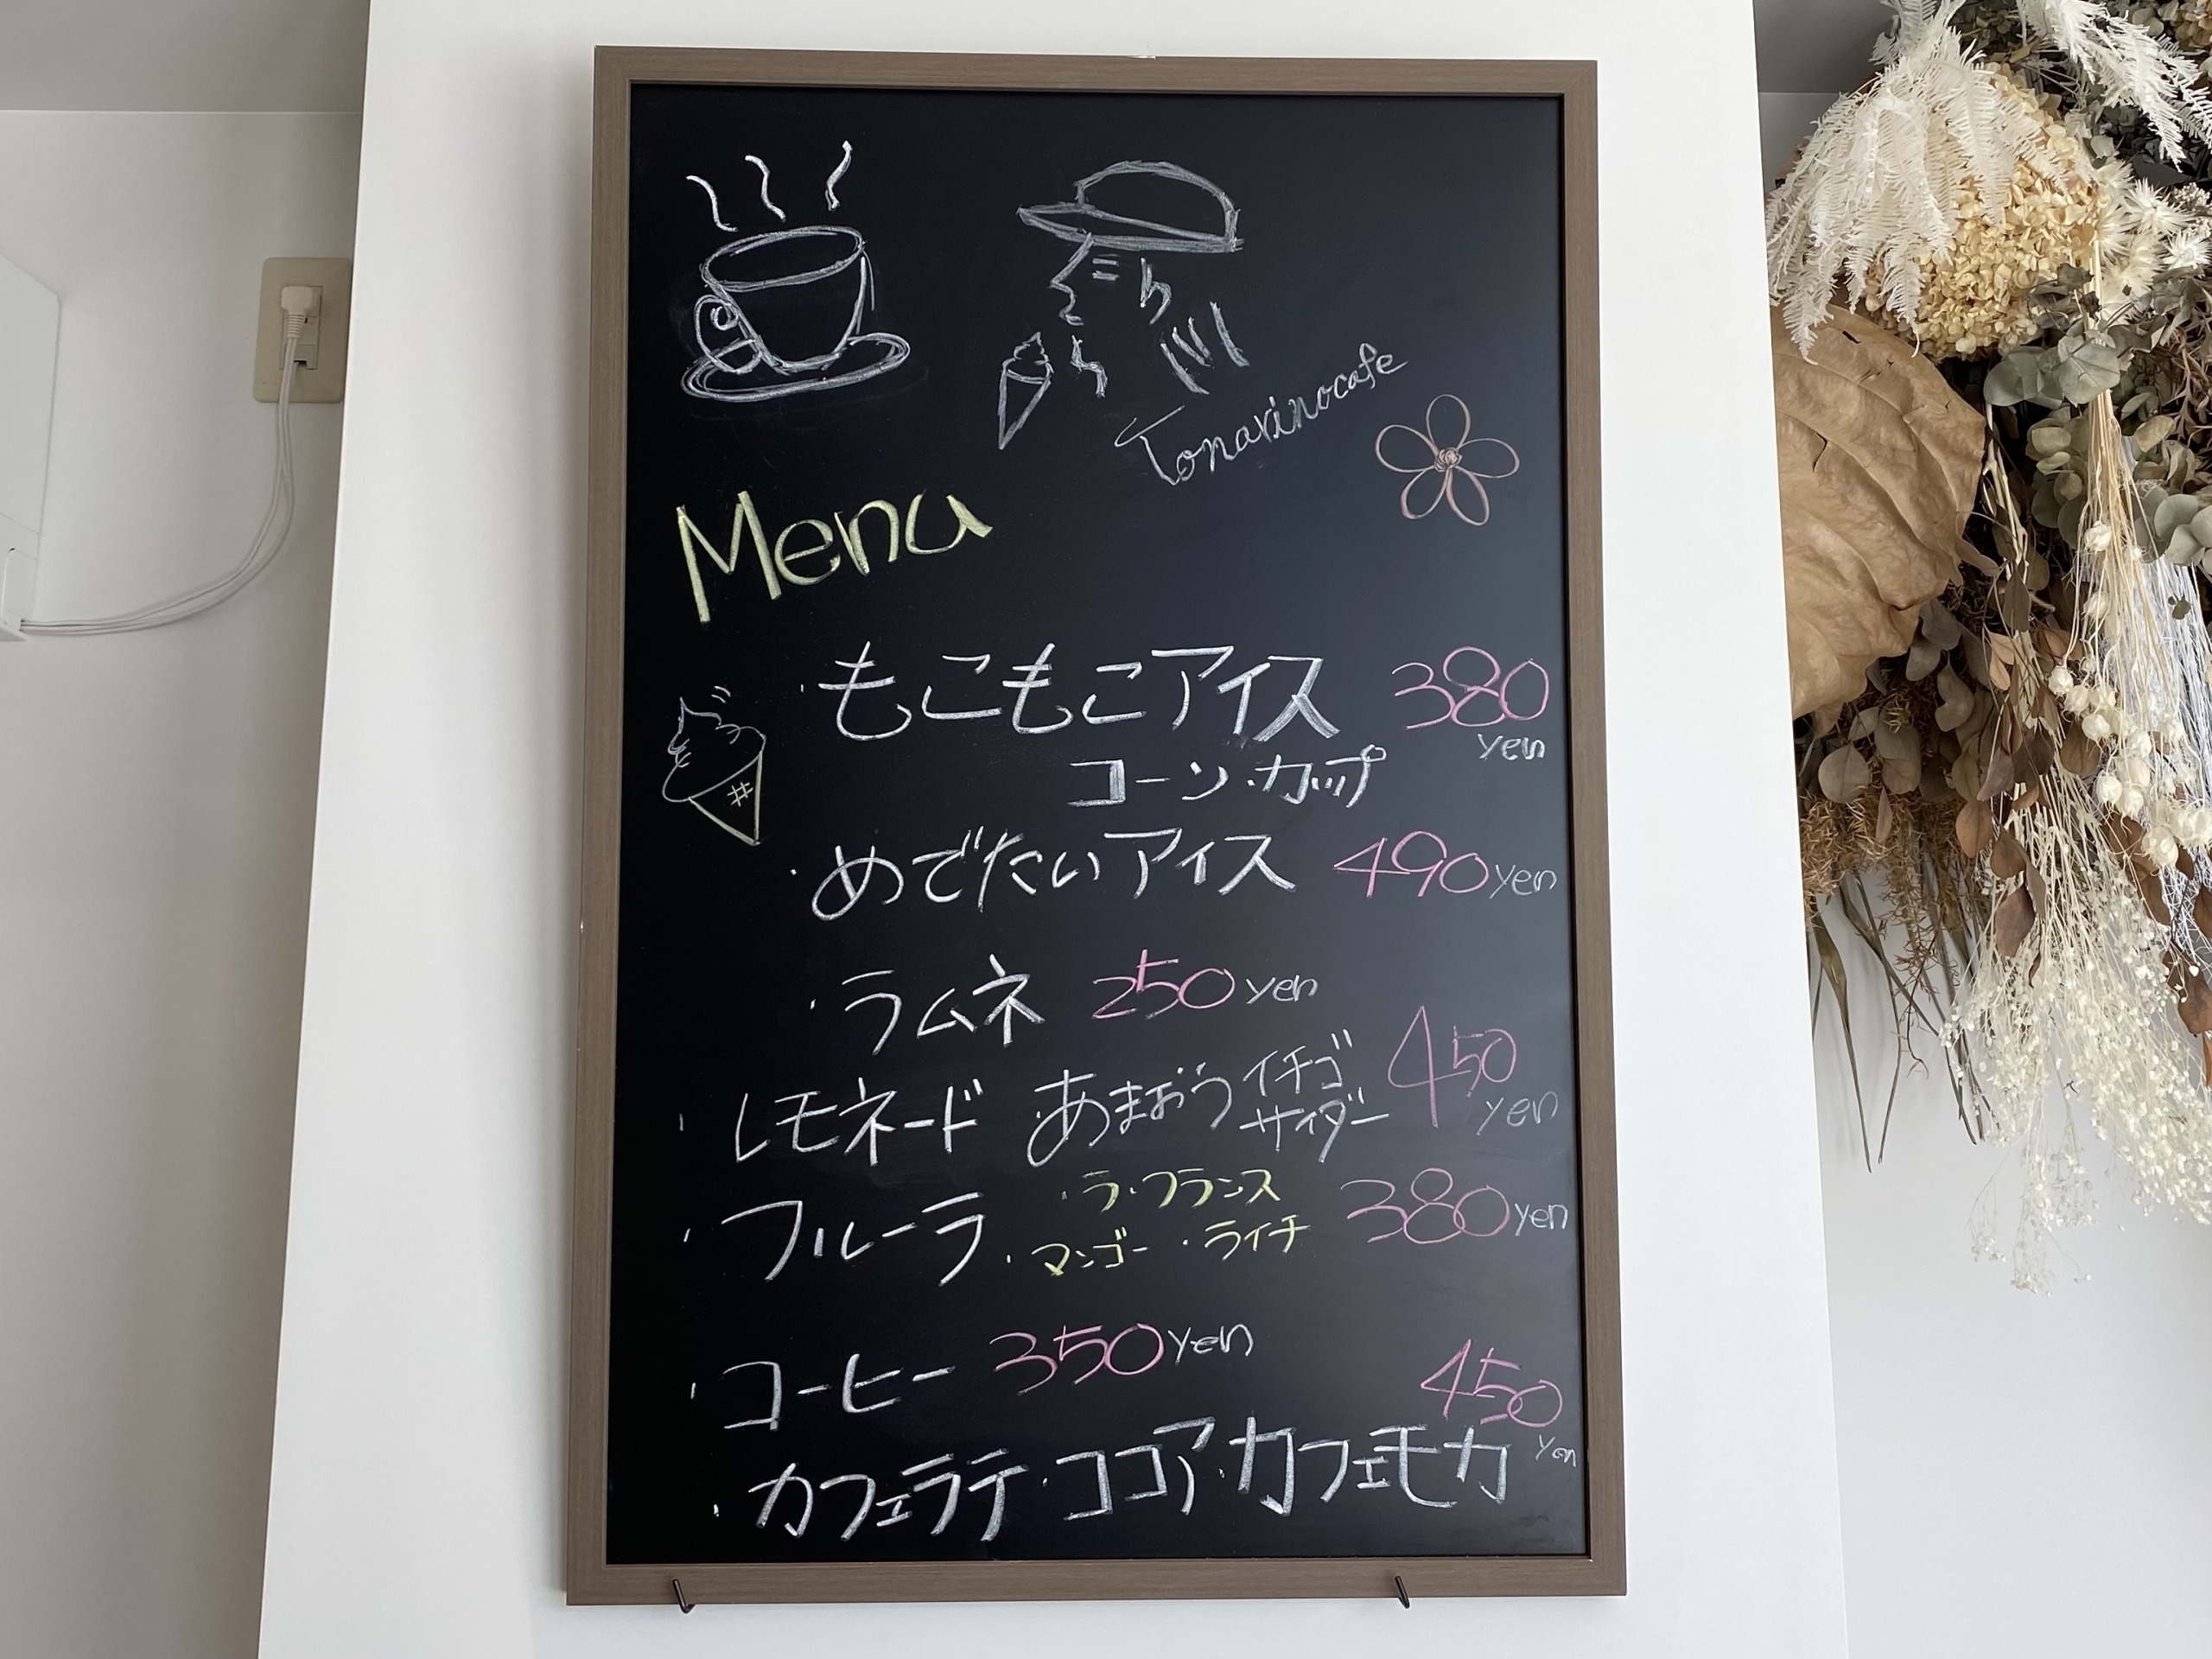 Tonarinocafe
Menu
・もこもこアイス 380 yen
コーン・カップ
・めでたいアイス 490 yen
・ラムネ 250 yen
・レモネード あまおうイチゴサイダー 450 yen
・フルーラ ・ラ・フランス 380 yen
・マンゴー ・ライチ
・コーヒー 350 yen
・カフェラテ・ココア・カフェモカ 450 yen